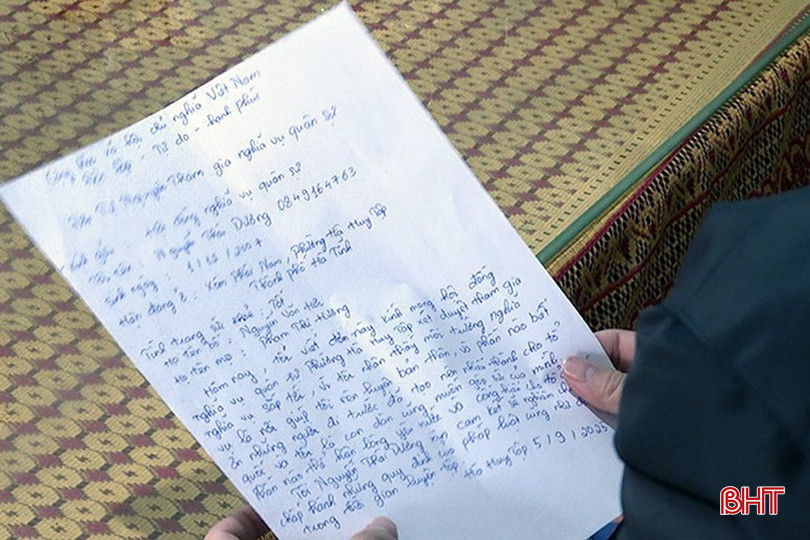 Cộng hòa xã hội chủ nghĩa Việt Nam
Độc lập - Tự do - hạnh phúc
Đơn Tự Nguyện Tham gia nghĩa vụ quân sự
Kính gửi: Hội đồng nghĩa vụ quân sự
Tôi tên: Nguyễn Thái Dương 0849164763
Sinh ngày: 1/12/2007
Hiện đang ở: Xóm Phú Nam, Phường Hà Huy Tập
Thành phố Hà Tĩnh
Tình trạng sức khỏe: Tốt.
Họ tên bố: Nguyễn Văn Tiến
Họ tên mẹ: Phan Thị Hương
Hôm nay, tôi viết đơn này kính mong hội đồng
nghĩa vụ quân sự Phường Hà Huy Tập xét duyệt tham gia
nghĩa vụ sắp tới, vì tôi nhận thấy môi trường nghĩa
vụ là nơi giúp tôi rèn luyện bản thân, và phần nào biết
ơn những người đi trước đã tạo nên nhà thành cho tổ
quốc và tôi là con dân cũng muốn góp sức mình,
phần nào thể hiện lòng yêu nước và cống hiến cho tổ
Tôi Nguyễn Thái Dương xin cam kết sẽ nghiêm
chấp hành những quy định và pháp luật cũng như
trong thời gian luyện tập. Hà Huy Tập 5/9/2025
BHT